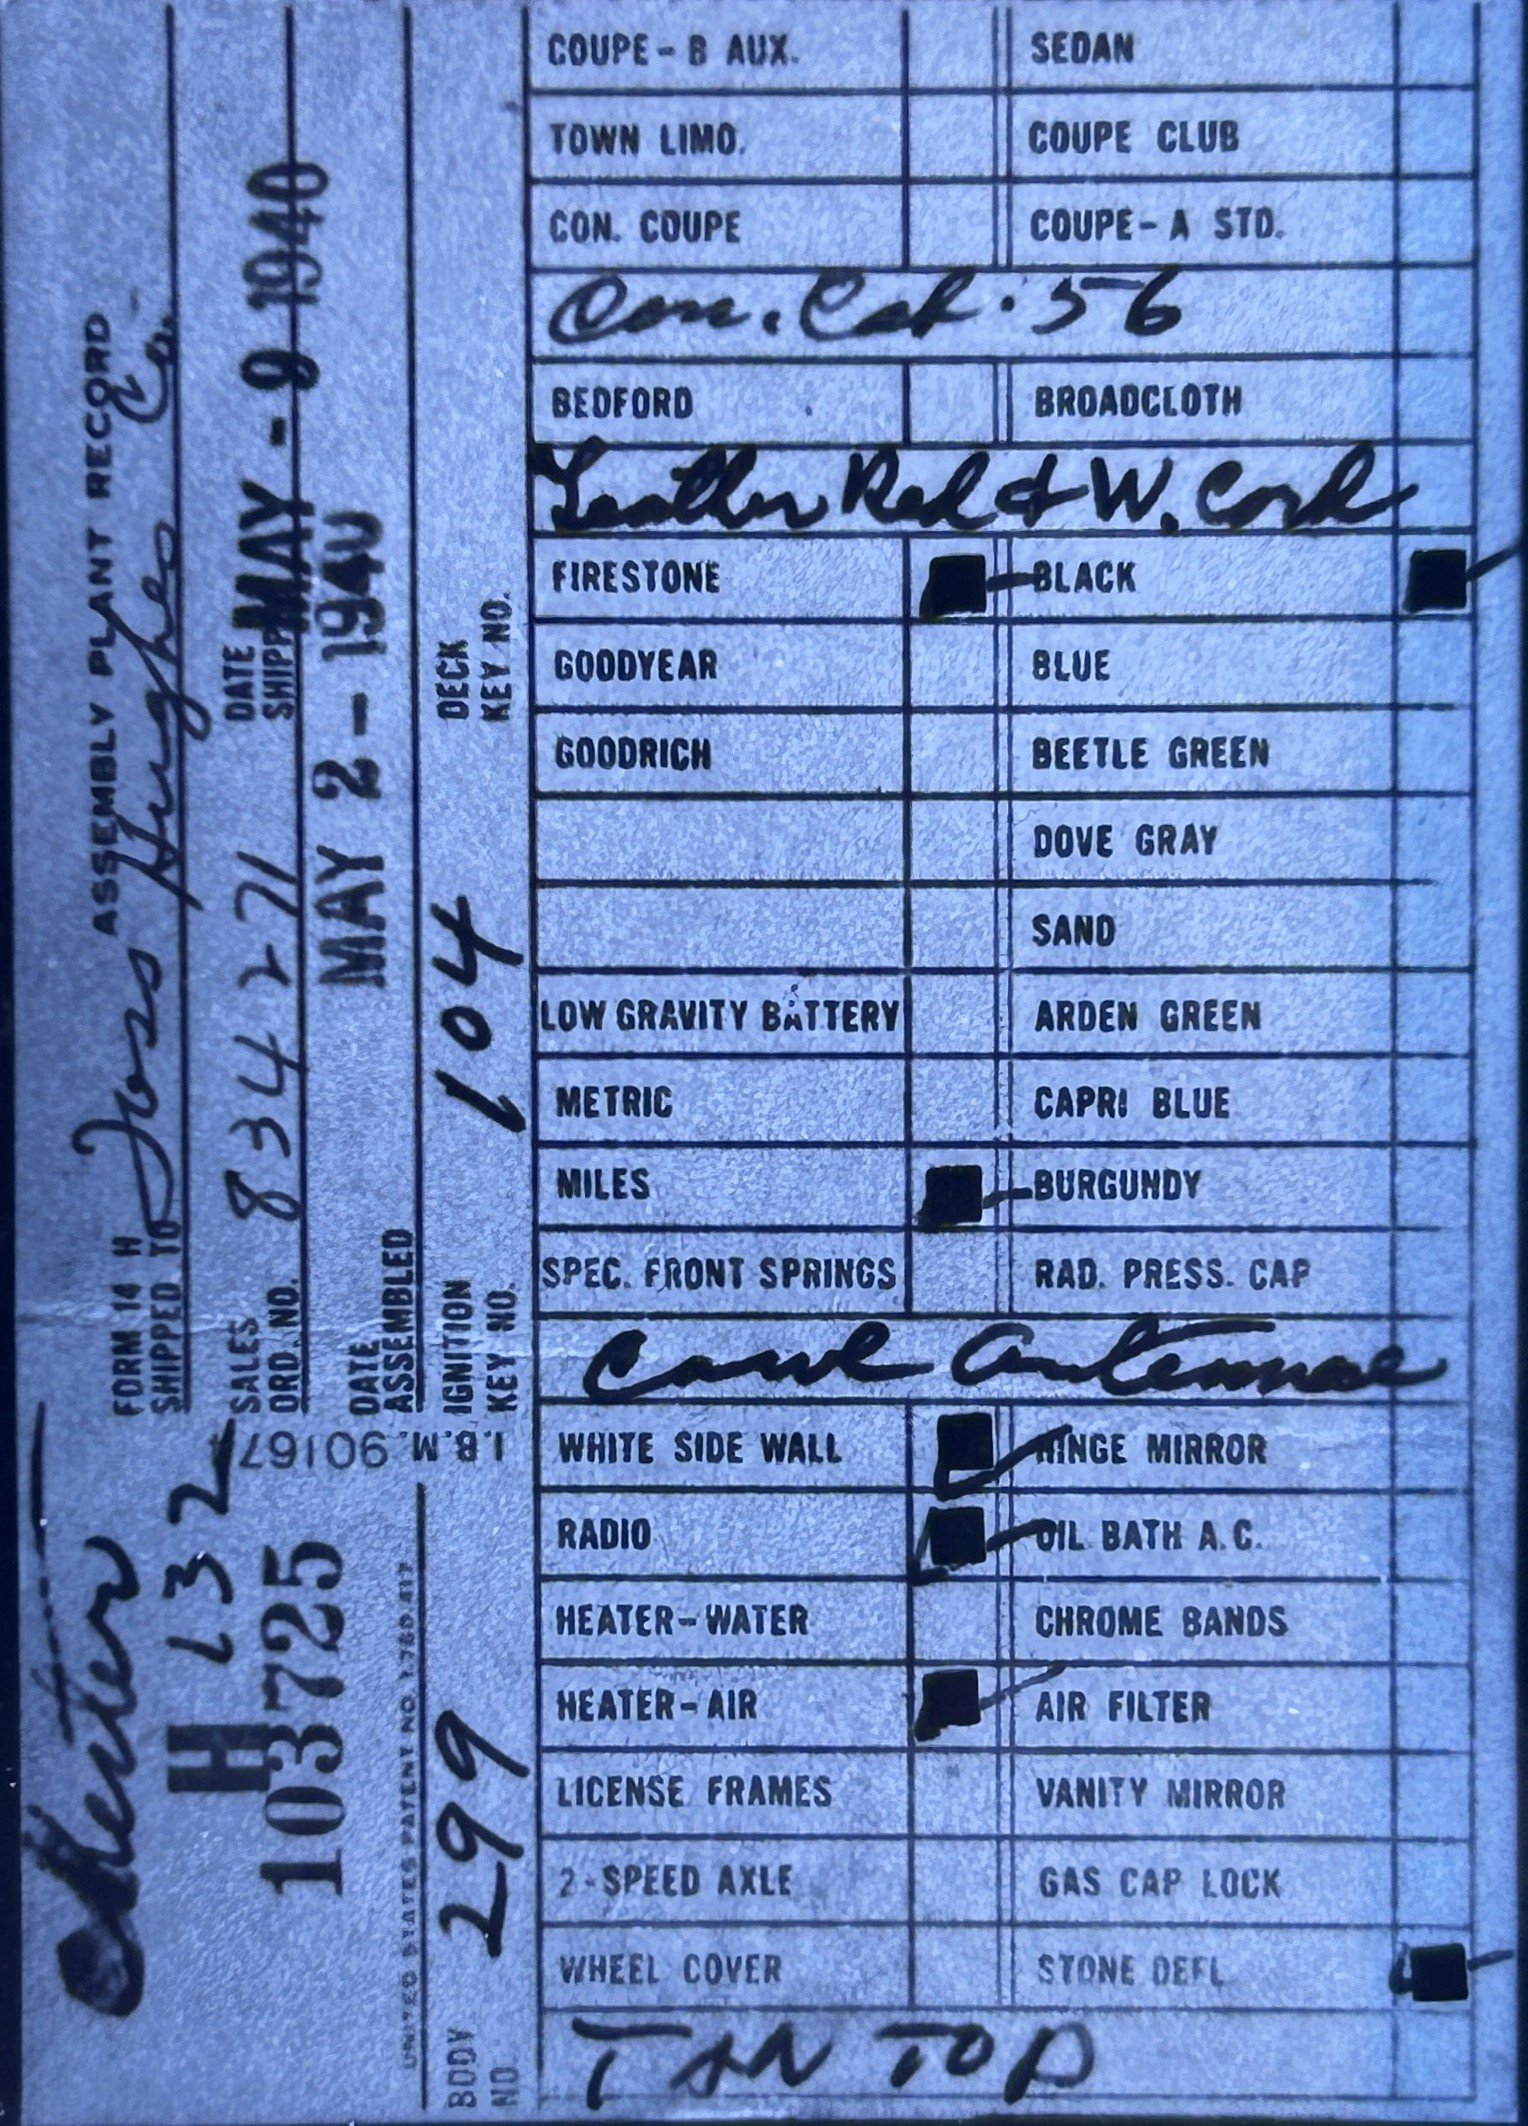 FORM 14 H ASSEMBLY PLANT RECORD
SHIPPED TO Hughes Co.
SALES ORD. NO. 834271 DATE SHIPP MAY - 9 1940
DATE ASSEMBLED MAY 2 - 1940
IGNITION KEY NO. 104 DECK KEY NO.
I.B.M. 90167
H 132
H
103725
UNITED STATES PATENT NO. 1,780,417
BODY NO. 299
COUPE - B AUX. SEDAN
TOWN LIMO. COUPE CLUB
CON. COUPE COUPE - A STD.
Con. Cab. 56
BEDFORD BROADCLOTH
Leather Red & W. Cord
FIRESTONE BLACK
GOODYEAR BLUE
GOODRICH BEETLE GREEN
DOVE GRAY
SAND
LOW GRAVITY BATTERY ARDEN GREEN
METRIC CAPRI BLUE
MILES BURGUNDY
SPEC. FRONT SPRINGS RAD. PRESS. CAP
Cowl Antennae
WHITE SIDE WALL HINGE MIRROR
RADIO OIL BATH A.C.
HEATER - WATER CHROME BANDS
HEATER - AIR AIR FILTER
LICENSE FRAMES VANITY MIRROR
2 - SPEED AXLE GAS CAP LOCK
WHEEL COVER STONE DEFL.
TAN TOP